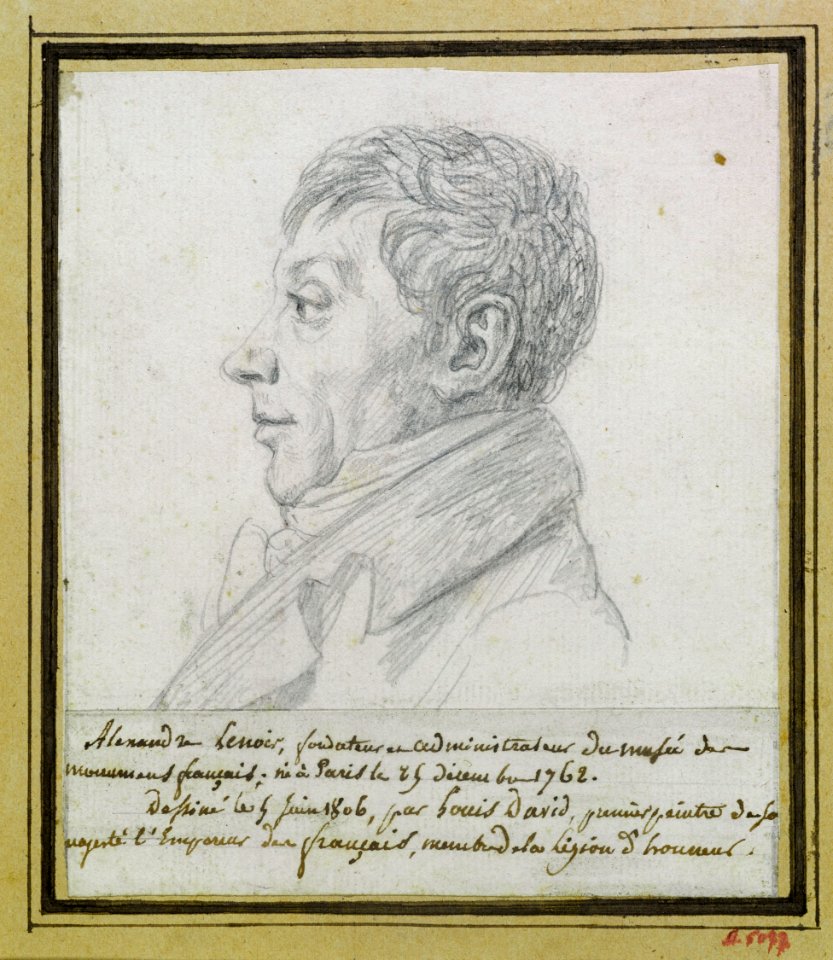 Alexandre Lenoir, fondateur et administrateur du musée des
monumens français; né à Paris le 25 décembre 1762.
Dessiné le 5 Juin 1806, par Louis David, premier peintre de sa
majesté l'Empereur des français, membre de la Légion d'honneur.